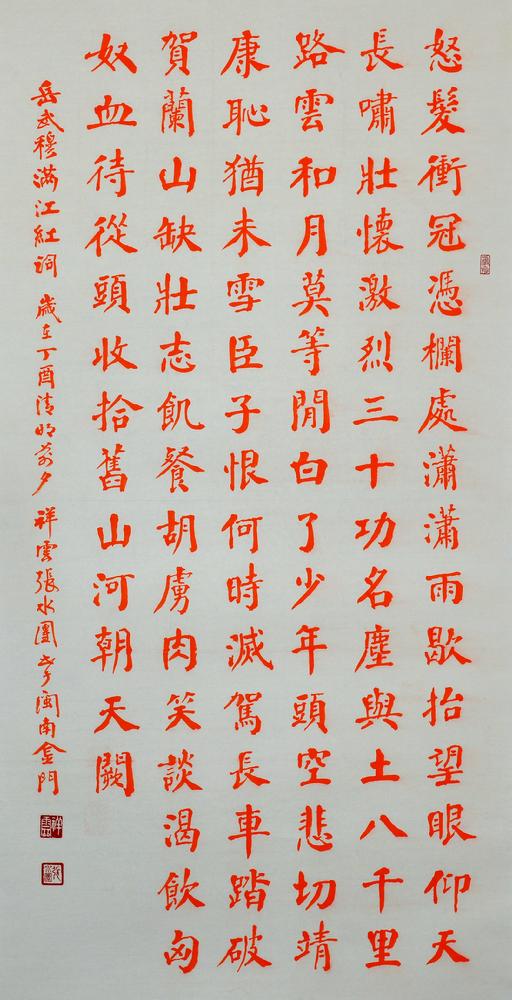 怒髮衝冠憑欄處瀟瀟雨歇抬望眼仰天
長嘯壯懷激烈三十功名塵與土八千里
路雲和月莫等閒白了少年頭空悲切靖
康恥猶未雪臣子恨何時滅駕長車踏破
賀蘭山缺壯志飢餐胡虜肉笑談渴飲匈
奴血待從頭收拾舊山河朝天闕
岳武穆滿江紅詞 歲在丁酉清明前夕 祥雲張水團書於閩南金門
祥雲